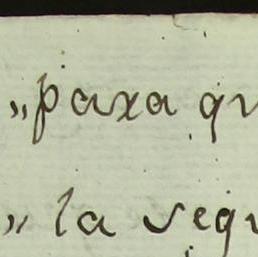 „para qu
„ la segu